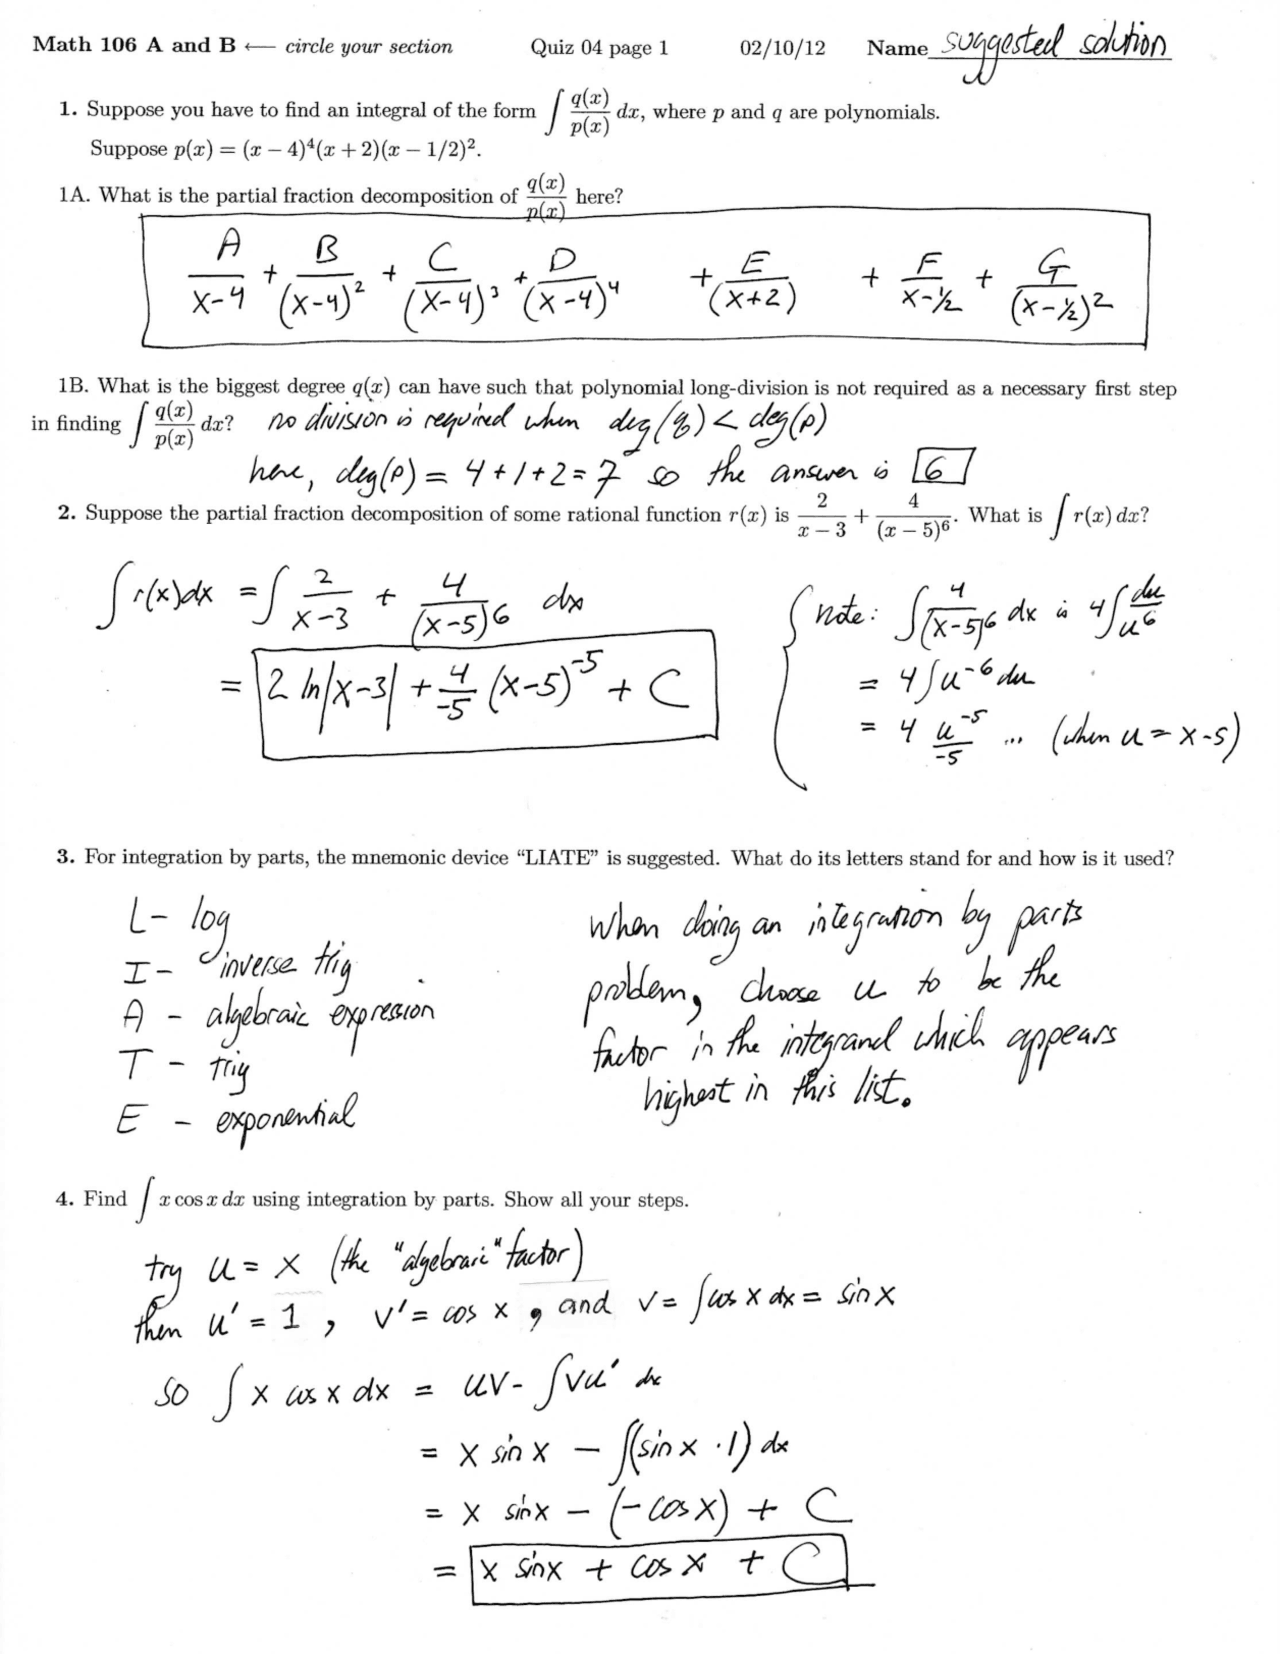 Math 106 A and B ⟵ circle your section Quiz 04 page 1 02/10/12 Name suggested solution
1. Suppose you have to find an integral of the form ∫ q(x)/p(x) dx, where p and q are polynomials.
Suppose p(x) = (x − 4)⁴(x + 2)(x − 1/2)².
1A. What is the partial fraction decomposition of q(x)/p(x) here?
A/(x-4) + B/(x-4)² + C/(x-4)³ + D/(x-4)⁴ + E/(x+2) + F/(x-½) + G/(x-½)²
1B. What is the biggest degree q(x) can have such that polynomial long-division is not required as a necessary first step
in finding ∫ q(x)/p(x) dx? no division is required when deg(q) < deg(p)
here, deg(p) = 4+1+2=7 so the answer is 6
2. Suppose the partial fraction decomposition of some rational function r(x) is 2/(x − 3) + 4/(x − 5)⁶. What is ∫ r(x) dx?
∫ r(x)dx = ∫ 2/(x-3) + 4/(x-5)⁶ dx
= 2 ln|x-3| + 4/-5 (x-5)⁻⁵ + C
{ note: ∫ 4/(x-5)⁶ dx is 4∫ du/u⁶
= 4∫u⁻⁶du
= 4 u⁻⁵/-5 ... (when u = x-5)
3. For integration by parts, the mnemonic device “LIATE” is suggested. What do its letters stand for and how is it used?
L- log
I- inverse trig
A - algebraic expression
T - trig
E - exponential
When doing an integration by parts
problem, choose u to be the
factor in the integrand which appears
highest in this list.
4. Find ∫ x cos x dx using integration by parts. Show all your steps.
try u = x (the "algebraic" factor)
then u' = 1, v' = cos x, and v = ∫cos x dx = sin x
so ∫ x cos x dx = uv- ∫vu' dx
= x sin x − ∫(sin x · 1) dx
= x sinx − (− cosx) + C
= x sinx + cos x + C